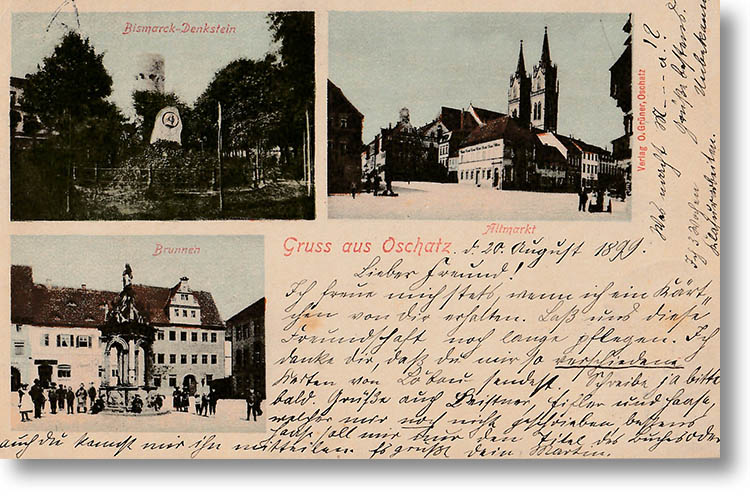 Bismarck-Denkstein
Altmarkt
Verlag O. Grüner, Oschatz
Brunnen
Gruss aus Oschatz, d. 20. August 1899.
Lieber Freund!
Ich freue mich stets, wenn ich ein Kärt-
chen von dir erhalten. Laß uns diese
Freundschaft noch lange pflegen. Ich
danke dir, daß du mir so verschiedene
Karten von Löbau sendest. Schreibe ja bitte
bald. Grüße auch und Haase,
welcher mir noch nicht geschrieben
Haase soll mir nur den Titel des Buches oder
auch du kannst mir ihn mitteilen. Es grüßt dein Martin.
Was machst
Grüße
Ich 3 Wochen